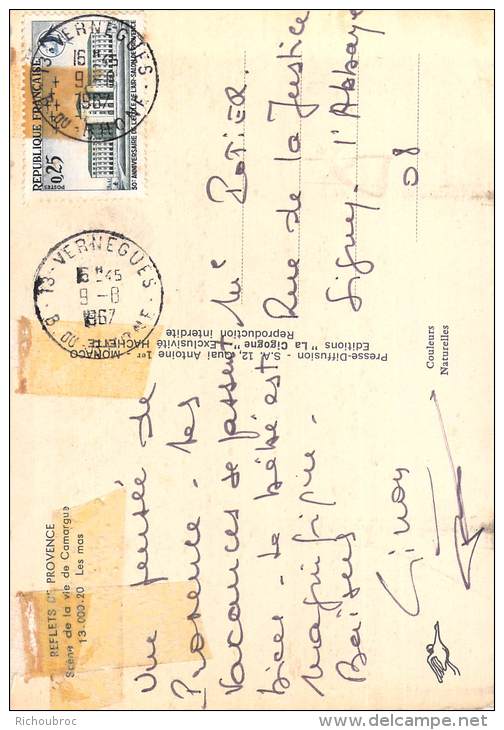 REFLETS DE PROVENCE
Scène de la vie de Camargue
13-000-20 Les mas
Une pensée de
Provence. Les
Vacances se passent
bien. Le bébé est
magnifique.
Baisers
Simon
Presse-Diffusion - S.A. 12, Quai Antoine 1er MONACO
Editions "La Cigogne" - Exclusivité HACHETTE
Reproduction interdite
Couleurs
Naturelles
REPUBLIQUE FRANÇAISE
POSTES
0,25
50e ANNIVERSAIRE DE L'ECOLE DE L'AIR-SALON DE PROVENCE
13-VERNEGUES
B. DU RHONE
9-8
1967
13-VERNEGUES
B. DU RHONE
15H45
9-8
1967
Me POTIER
Rue de la Justice
Signy l'Abbaye
08
Richoubroc
delcampe.net